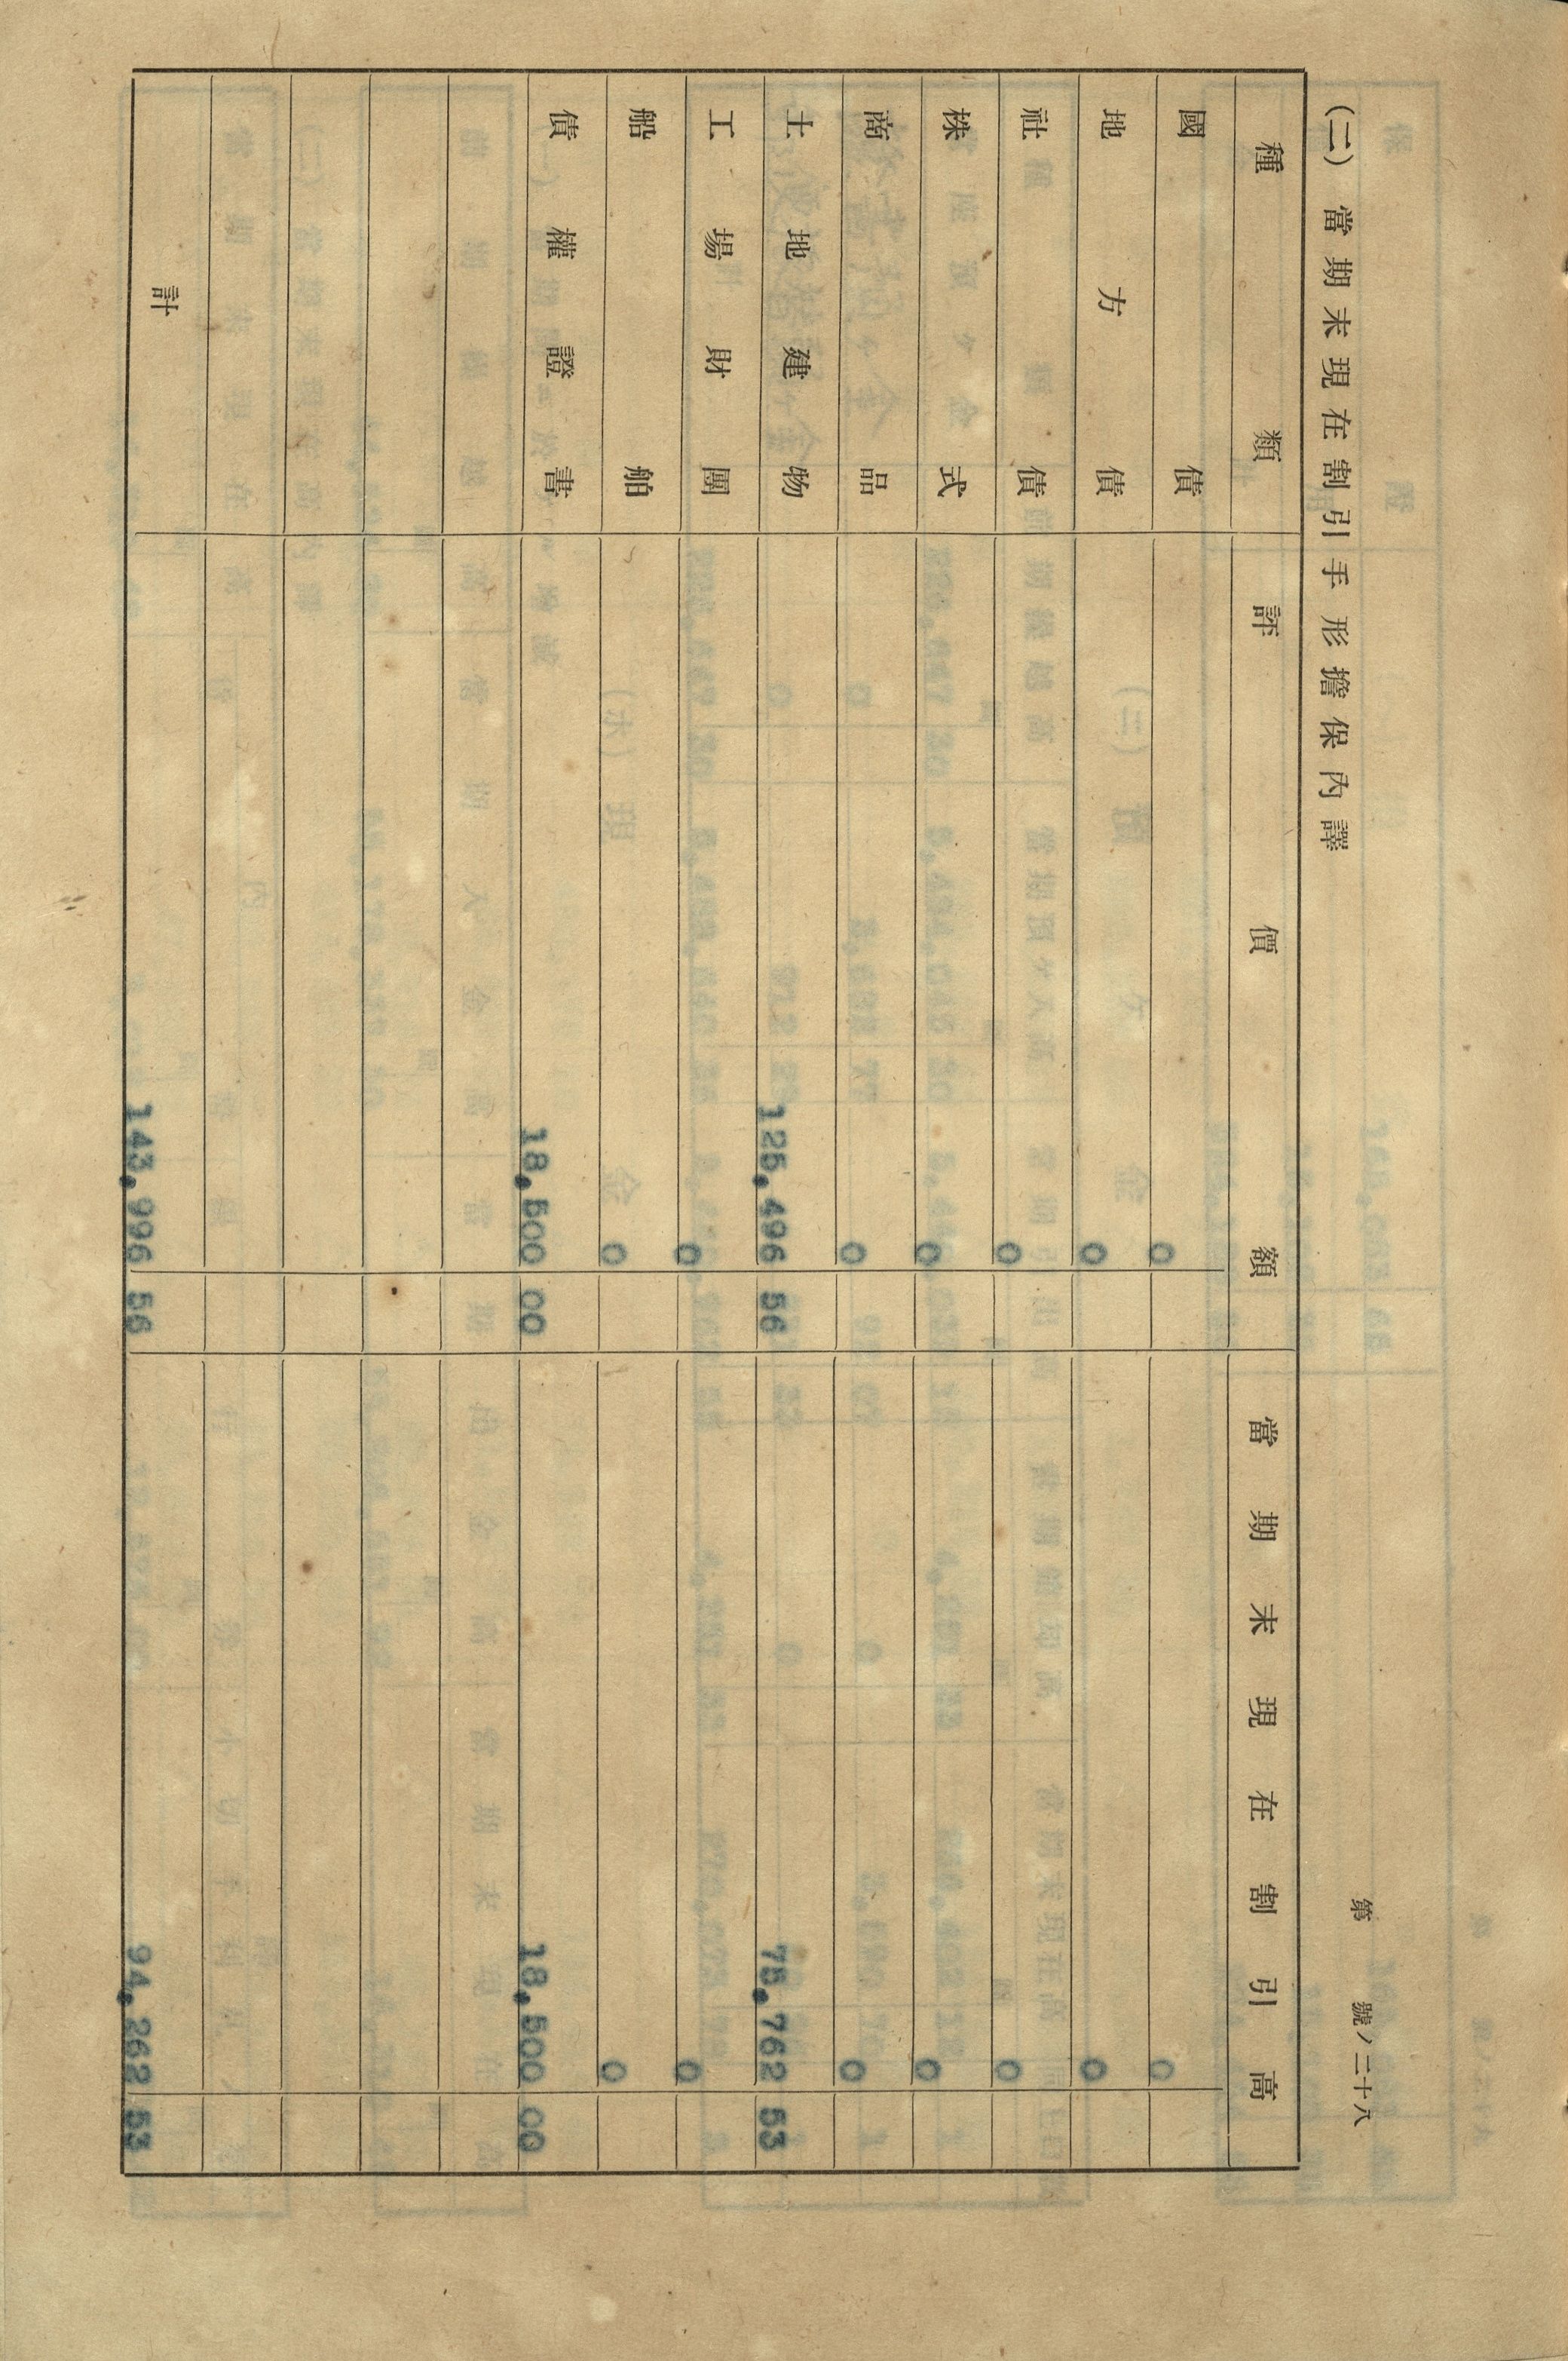 第　　號ノ二十八
(二) 當期末現在割引手形擔保內譯
種類 評價額 當期末現在割引高
國債 0 0
地方債 0 0
社債 0 0
株式 0 0
商品 0 0
土地建物 125,496 56 75,762 53
工場財團 0 0
船舶 0 0
債權證書 18,500 00 18,500 00
計 143,996 56 94,262 53